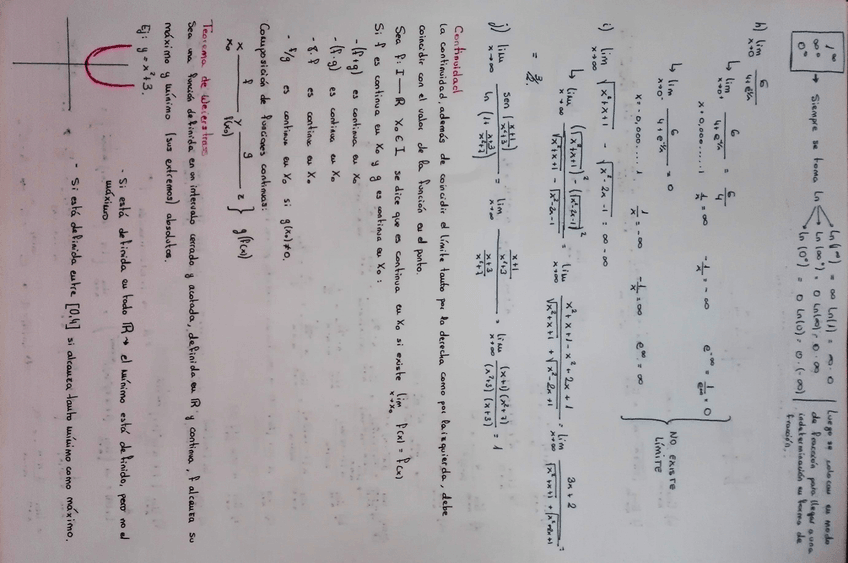 1^∞
∞^0
0^0
→ Siempre se toma ln
ln(1^∞) = ∞ ln(1) = ∞·0
ln(∞^0) = 0 ln(∞) = 0·∞
ln(0^0) = 0 ln(0) = 0·(-∞)
Luego se coloca en modo
de fracción para llegar a una
indeterminación en forma de
fracción.
h) lim x→0 6/(4+e^(-1/x))
↳ lim x→0+ 6/(4+e^(-1/x)) = 6/4
x = 0,000.....1 1/x = ∞ -1/x = -∞ e^(-∞) = 1/e^∞ = 0
↳ lim x→0- 6/(4+e^(-1/x)) = 0
x = -0,000....1 1/x = -∞ -1/x = ∞ e^∞ = ∞
NO EXISTE
LÍMITE
i) lim x→∞ √(x²+x+1) - √(x²-2x-1) = ∞-∞
↳ lim x→∞ ((√(x²+x+1))² - (√(x²-2x-1))²)/(√(x²+x+1) - √(x²-2x-1)) = lim x→∞ (x²+x+1-x²+2x+1)/(√(x²+x+1) + √(x²-2x+1)) = lim x→∞ (3x+2)/(√(x²+x+1) + √(x²-2x+1)) =
= 3/2.
j) lim x→∞ sen((x+1)/(x²+3))/ln(1+(x+3)/(x²+7)) = lim x→∞ ((x+1)/(x²+3))/((x+3)/(x²+7)) = lim x→∞ ((x+1)(x²+7))/((x²+3)(x+3)) = 1
Continuidad
La continuidad, además de coincidir el límite tanto por la derecha como por la izquierda, debe
coincidir con el valor de la función en el punto.
Sea f: I — R x₀ ∈ I se dice que es continua en x₀ si existe lim x→x₀ f(x) = f(x)
Si f es continua en x₀ y g es continua en x₀:
- (f+g) es continua en x₀
- (f·g) es continua en x₀
- f/g es continua en x₀ si g(x₀)≠0.
Composición de funciones continuas:
x — f — y — g — z } g(f(x))
x₀ f(x₀)
Teorema de Weierstrass
Sea una función definida en un intervalo cerrado y acotada, definida en R y continua, f alcanza su
máximo y mínimo (sus extremos) absolutos.
Ej: y = x²+3.
- Si está definida en todo R → el mínimo está definido, pero no el
máximo
- Si está definida entre [0,4] si alcanza tanto mínimo como máximo.